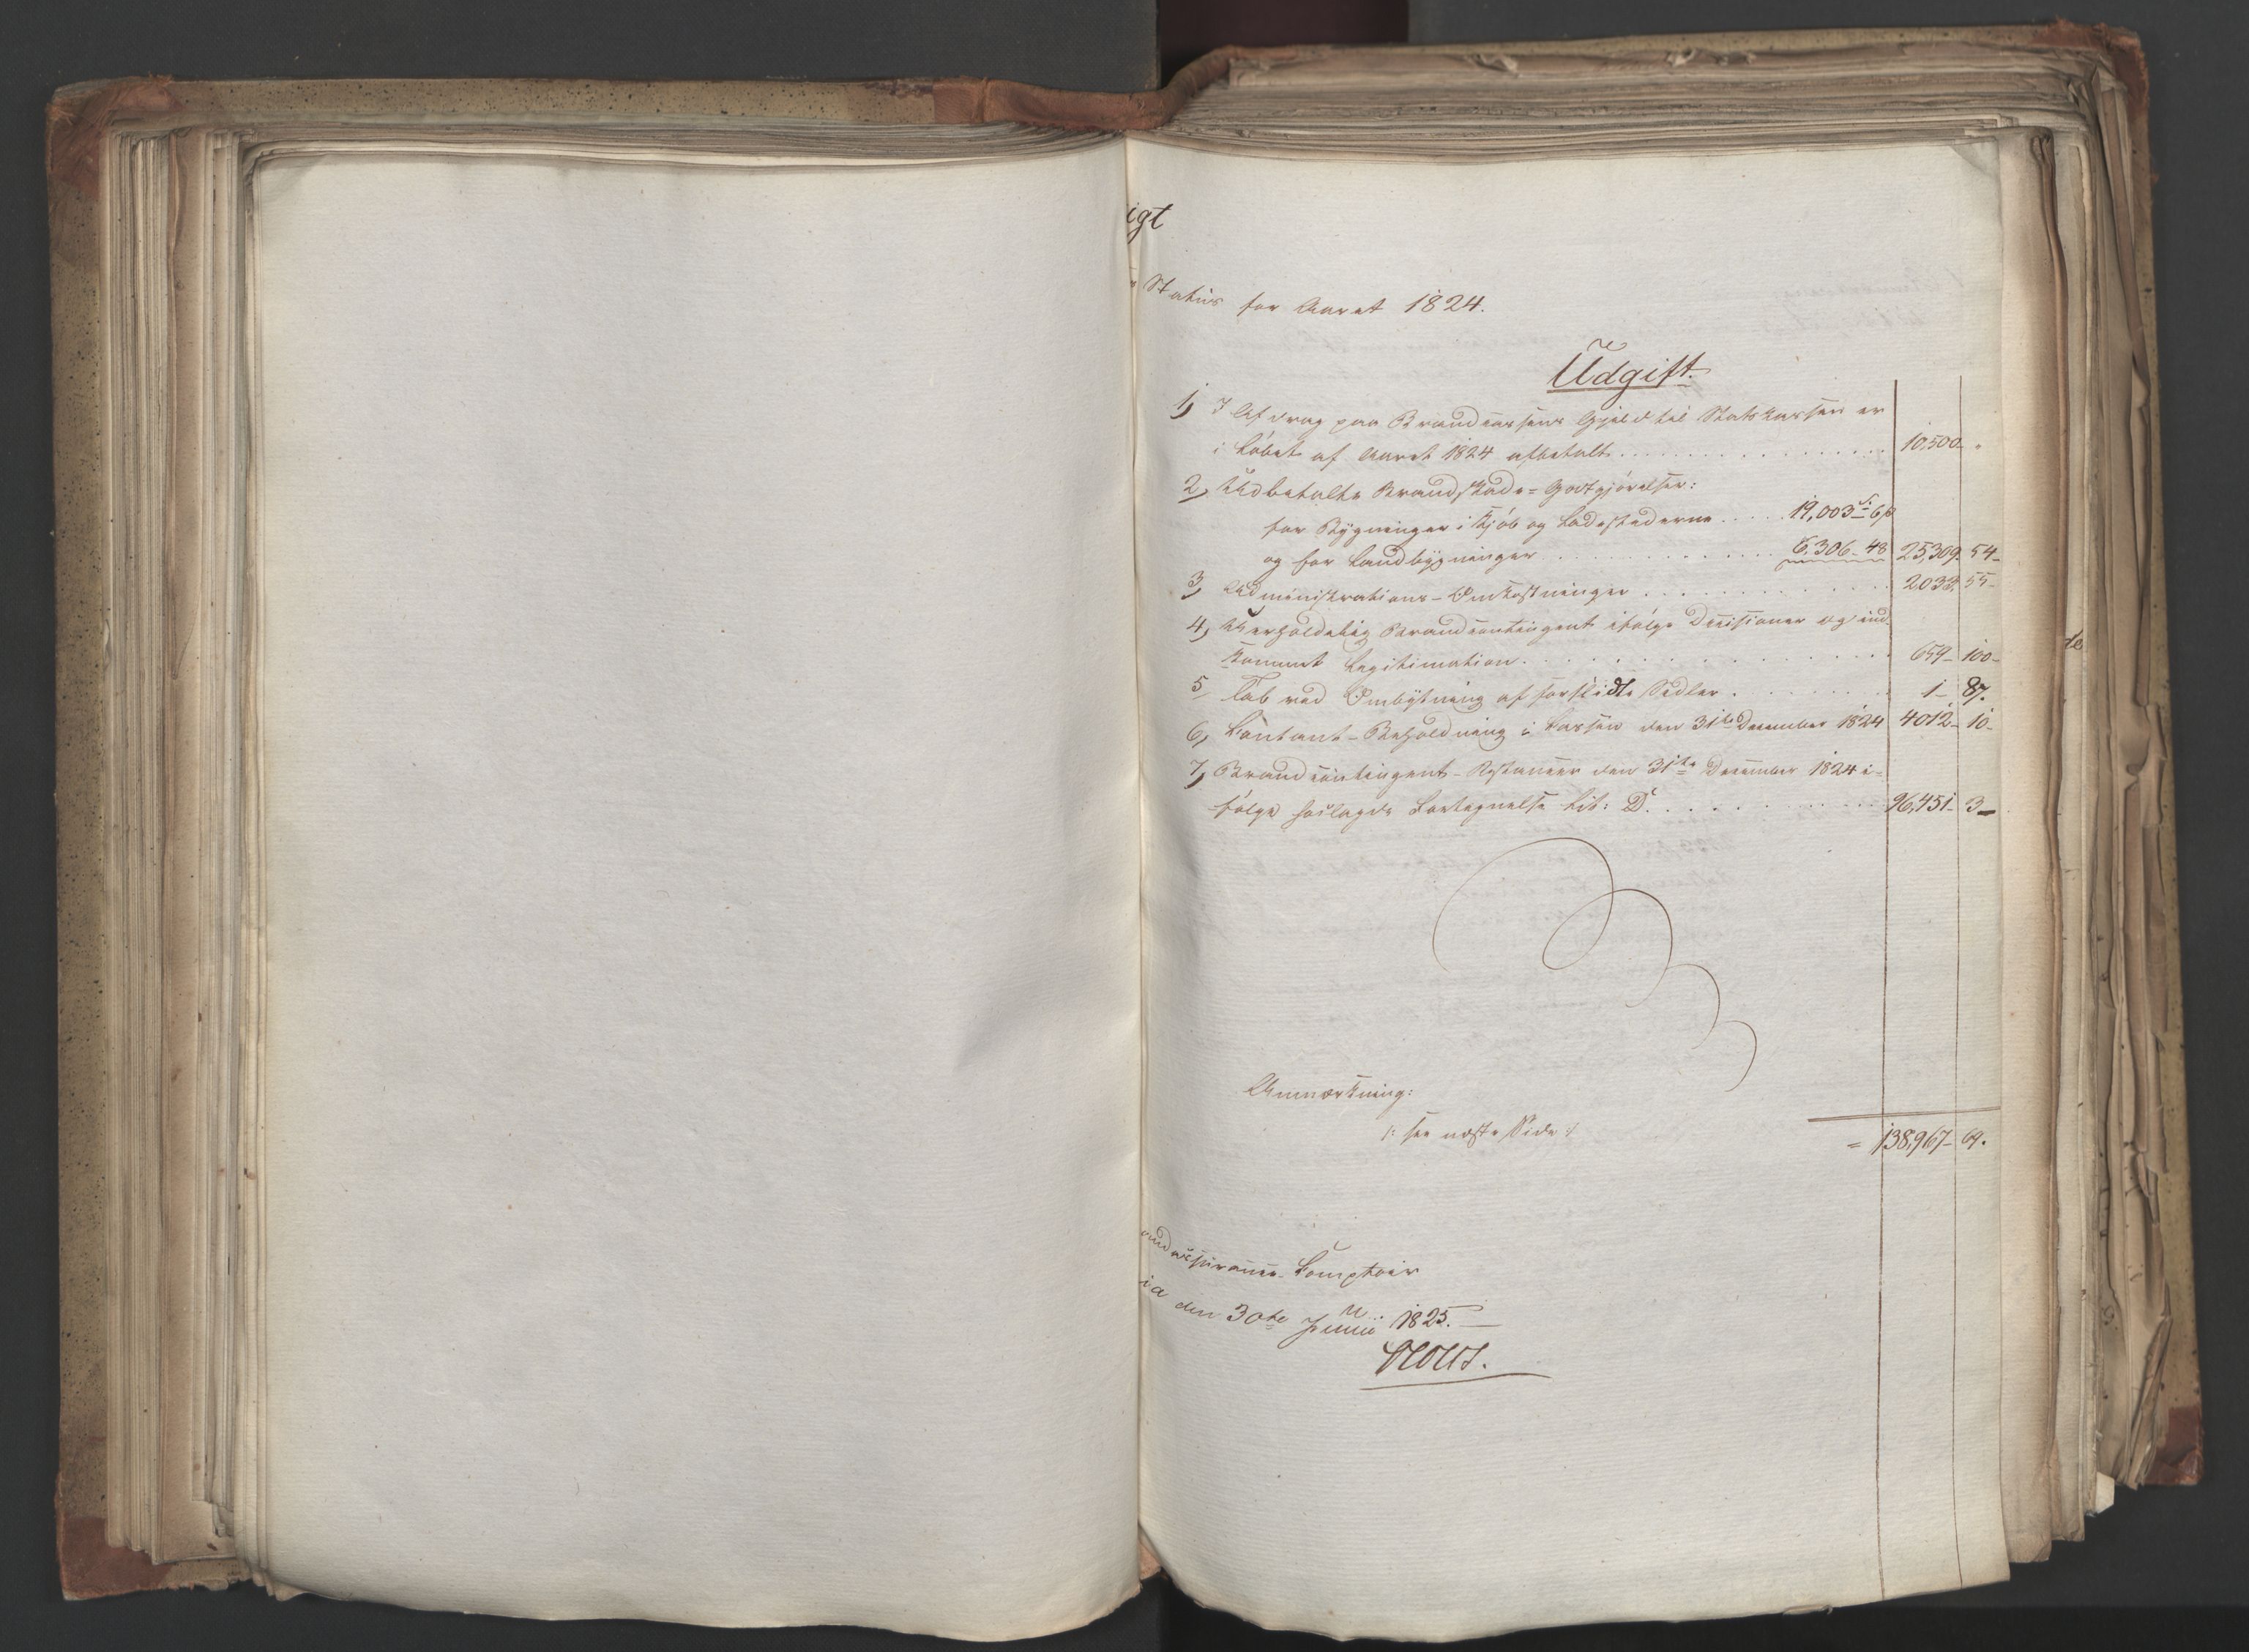 igt
Status for Aaret 1824.
Udgift.
1, I Afdrag paa Brandcassens Gjeld til Statskassen er
i Løbet af Aaret 1824 afbetalt . . . 10,500 - "
2, Udbetalte Brandskade=Godtgjørelser:
for Bygninger i Kjøb og Ladestederne . . . 19,003 6
og for Landbygninger . . . 6,306 - 48 25,309 - 54 -
3, Administrations-Omkostninger . . . 2033 - 55 -
4, Uerholdelig Brandcontingent ifølge Decisioner og ind-
kommet Legitimation . . . 659 - 100 -
5, Tab ved Ombytning af forslidte Sedler . . . 1 - 87.
6, Contant-Beholdning i Cassen den 31te December 1824 4012 - 10 -
7, Brandcontingent-Restancer den 31te December 1824 i-
følge hoslagde Fortegnelse Lit: D. . . . 96,451 - 3 -
Anmærkning:
/: see næste Side :/
= 138,967 - 69.
andassurance-Comptoir
ia den 30te Junii 1825. -